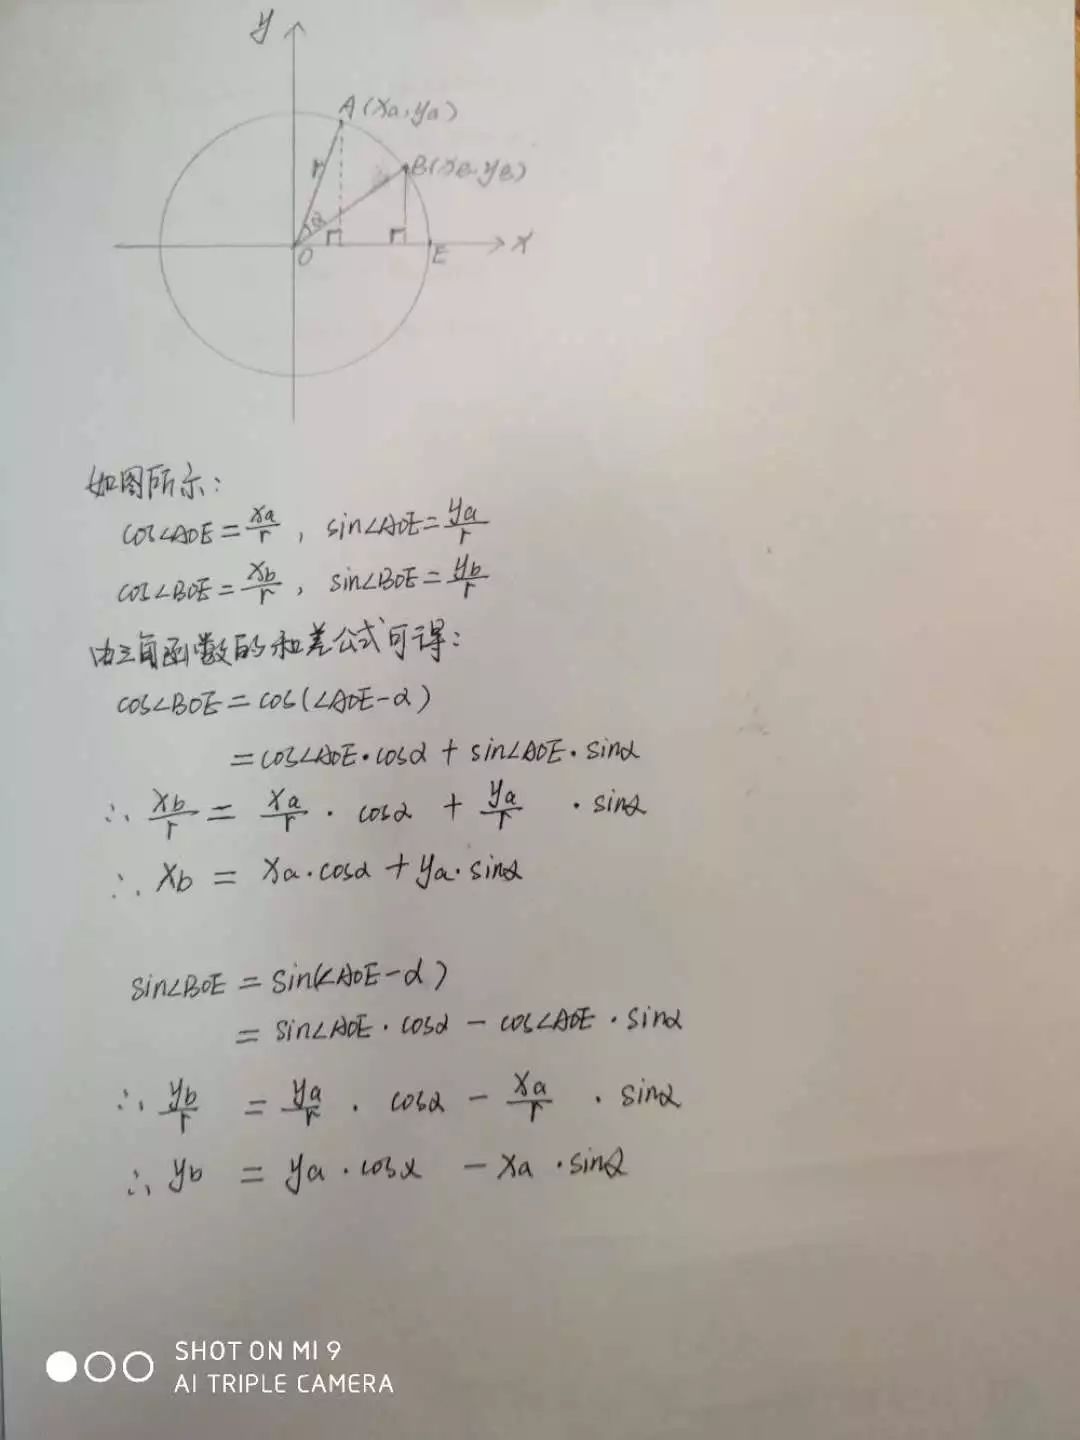 y
A(xa,ya)
B(xB,yB)
r
α
O
E
x
如图所示:
cos∠AOE=xa/r, sin∠AOE=ya/r
cos∠BOE=xb/r, sin∠BOE=yb/r
由三角函数的和差公式可得:
cos∠BOE=cos(∠AOE-α)
=cos∠AOE·cosα+sin∠AOE·sinα
∴ xb/r = xa/r · cosα + ya/r · sinα
∴ xb = xa·cosα+ya·sinα
sin∠BOE = sin(∠AOE-α)
= sin∠AOE·cosα - cos∠AOE·sinα
∴ yb/r = ya/r · cosα - xa/r · sinα
∴ yb = ya·cosα - xa·sinα
SHOT ON MI 9
AI TRIPLE CAMERA